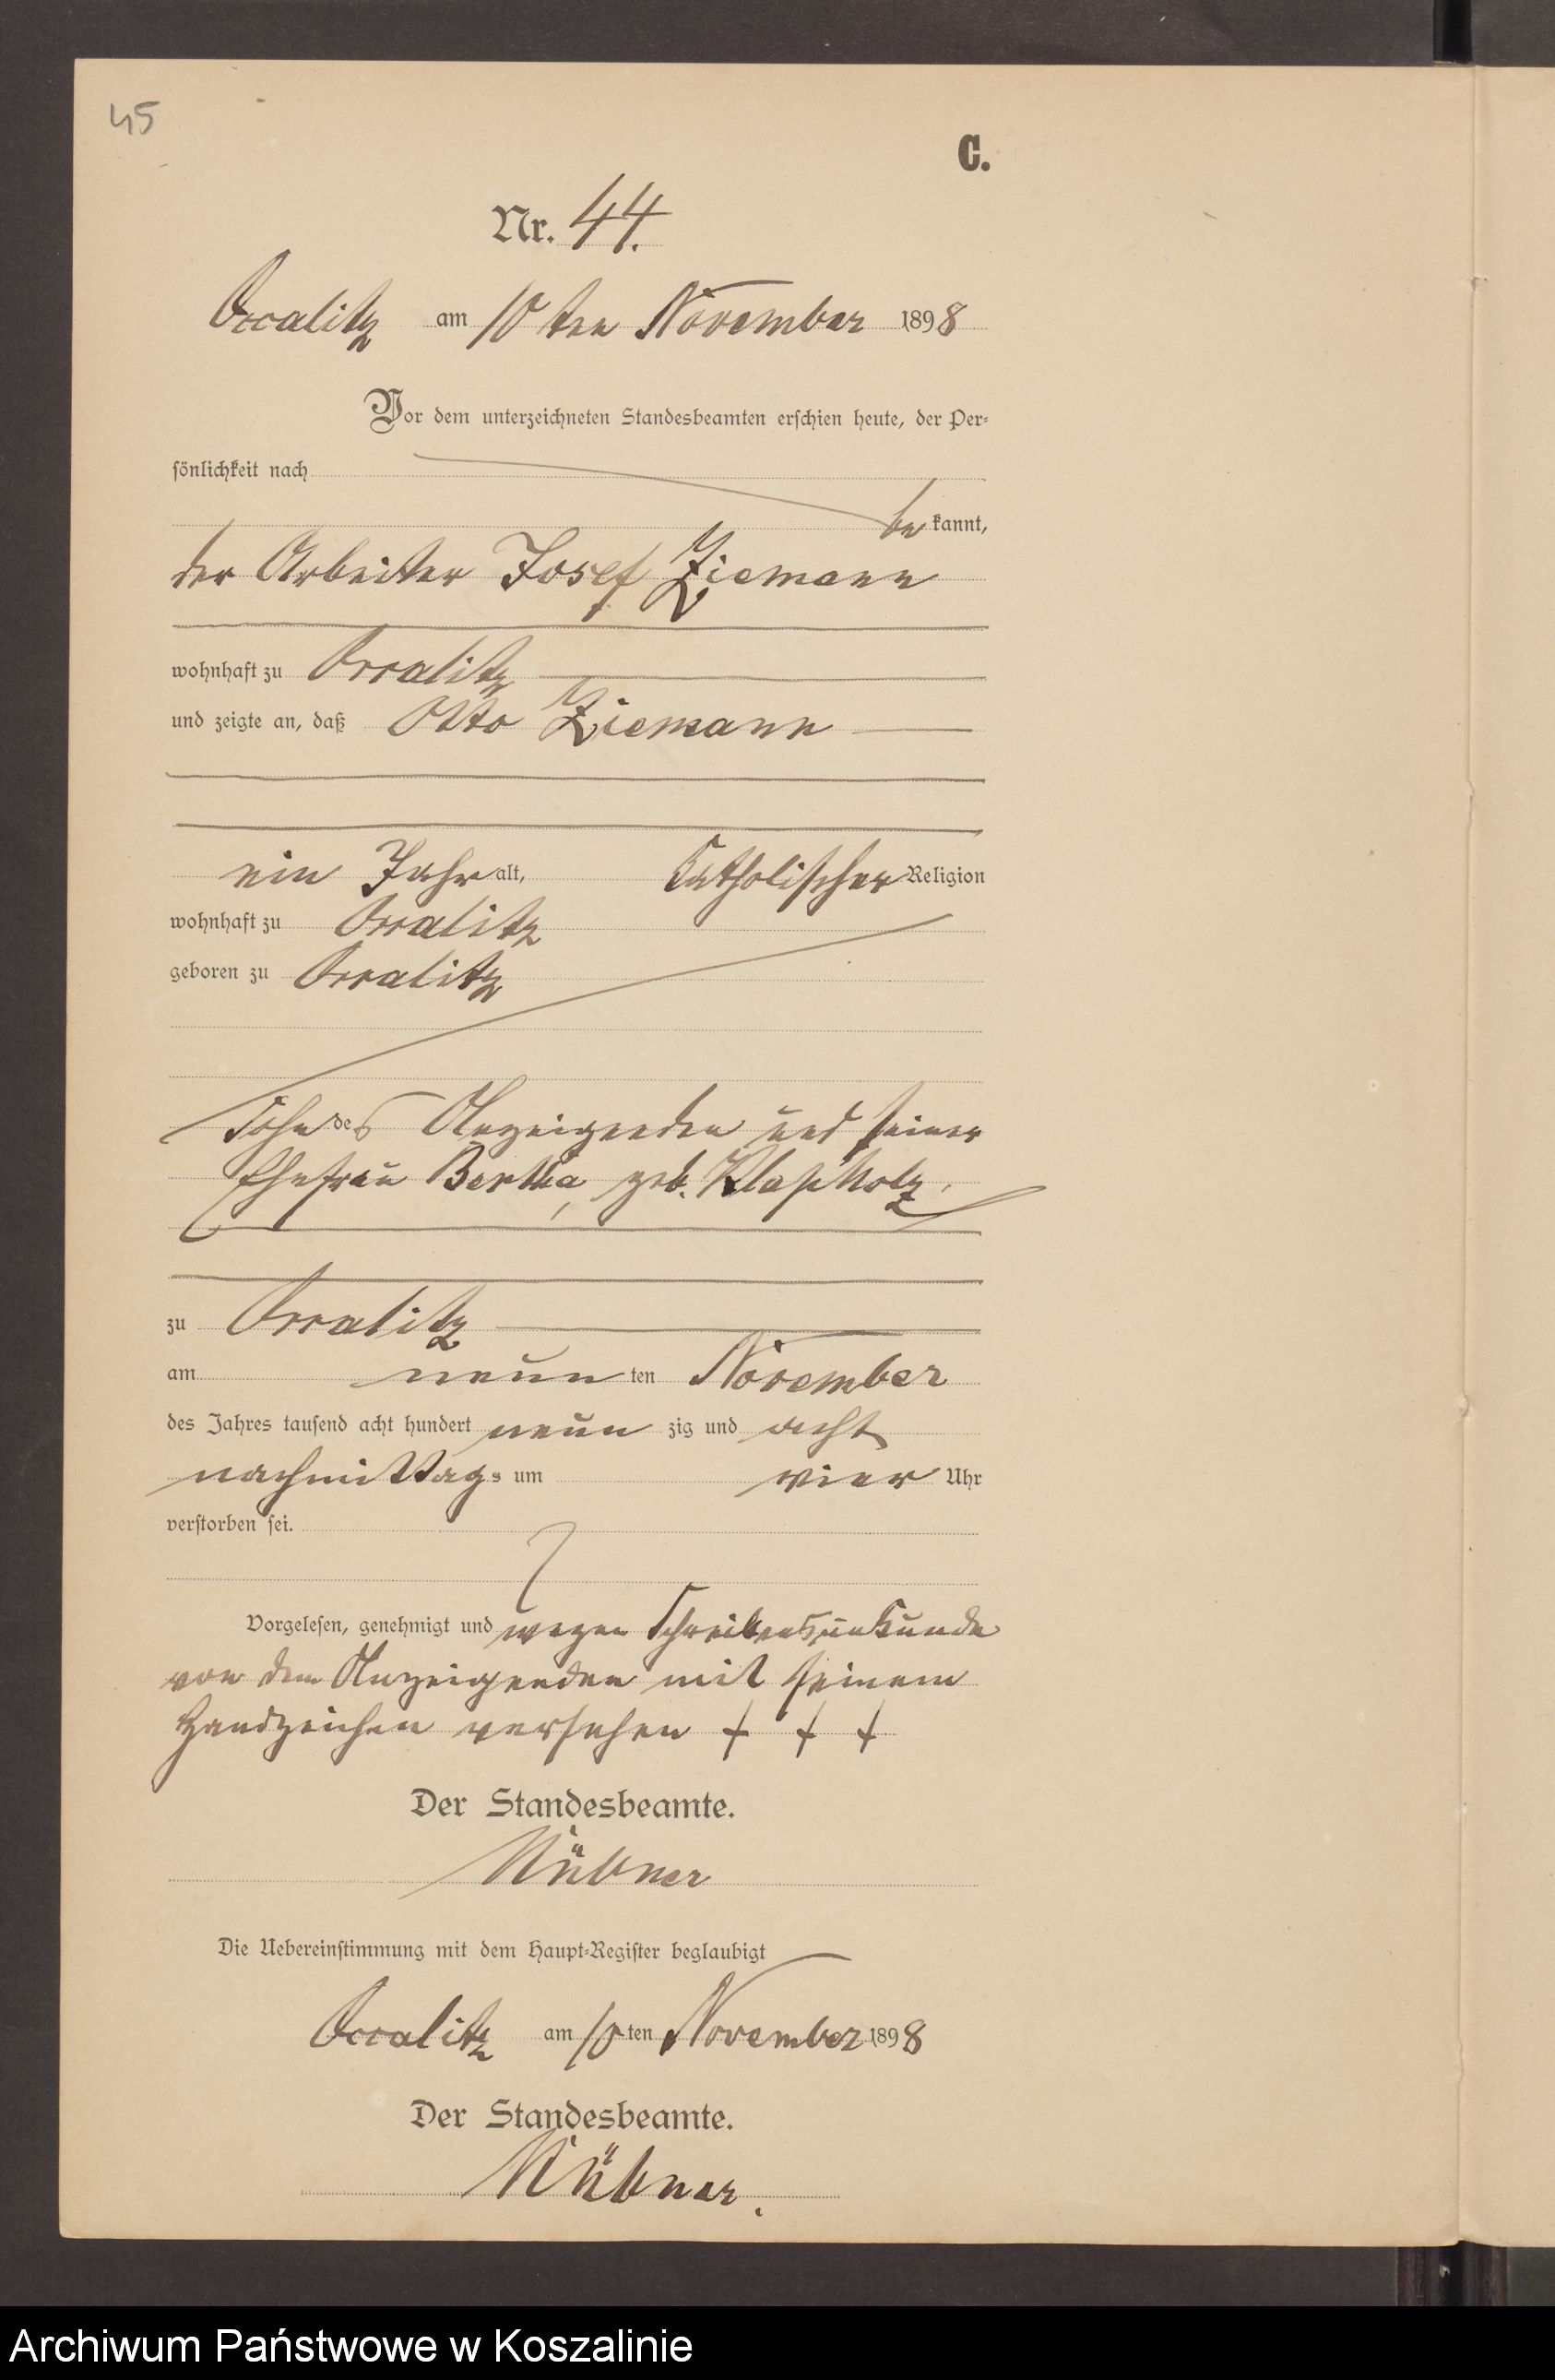 45
C.
Nr. 44.
Occalitz am 10ten November 1898
Vor dem unterzeichneten Standesbeamten erschien heute, der Per-
sönlichkeit nach
be kannt,
der Arbeiter Josef Ziemann
wohnhaft zu Occalitz
und zeigte an, daß Otto Ziemann
ein Jahr alt, katholischer Religion
wohnhaft zu Occalitz
geboren zu Occalitz
Sohn des Anzeigenden und seiner
Ehefrau Bertha, geb. Klapholz,
zu Occalitz
am neun ten November
des Jahres tausend acht hundert neun zig und acht
nachmittags um vier Uhr
verstorben sei.
Vorgelesen, genehmigt und wegen Schreibensunkunde
von dem Anzeigenden mit seinem
Handzeichen versehen + + +
Der Standesbeamte.
Nübner
Die Uebereinstimmung mit dem Haupt-Register beglaubigt
Occalitz am 10ten November 1898
Der Standesbeamte.
Nübner.
Archiwum Państwowe w Koszalinie